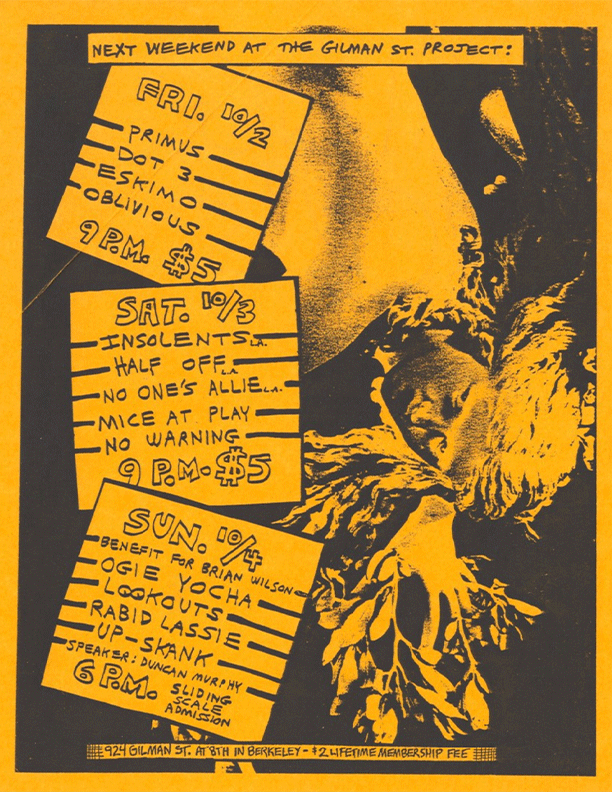 NEXT WEEKEND AT THE GILMAN ST. PROJECT:
FRI. 10/2
PRIMUS
DOT 3
ESKIMO
OBLIVIOUS
9 P.M. $5
SAT. 10/3
INSOLENTS L.A.
HALF OFF L.A.
NO ONE'S ALLIE L.A.
MICE AT PLAY
NO WARNING
9 P.M. $5
SUN. 10/4
BENEFIT FOR BRIAN WILSON
OGIE YOCHA
LOOKOUTS
RABID LASSIE
UP-SKANK
SPEAKER: DUNCAN MURPHY
6 P.M. SLIDING
SCALE
ADMISSION
924 GILMAN ST. AT 8TH IN BERKELEY - $2 LIFETIME MEMBERSHIP FEE